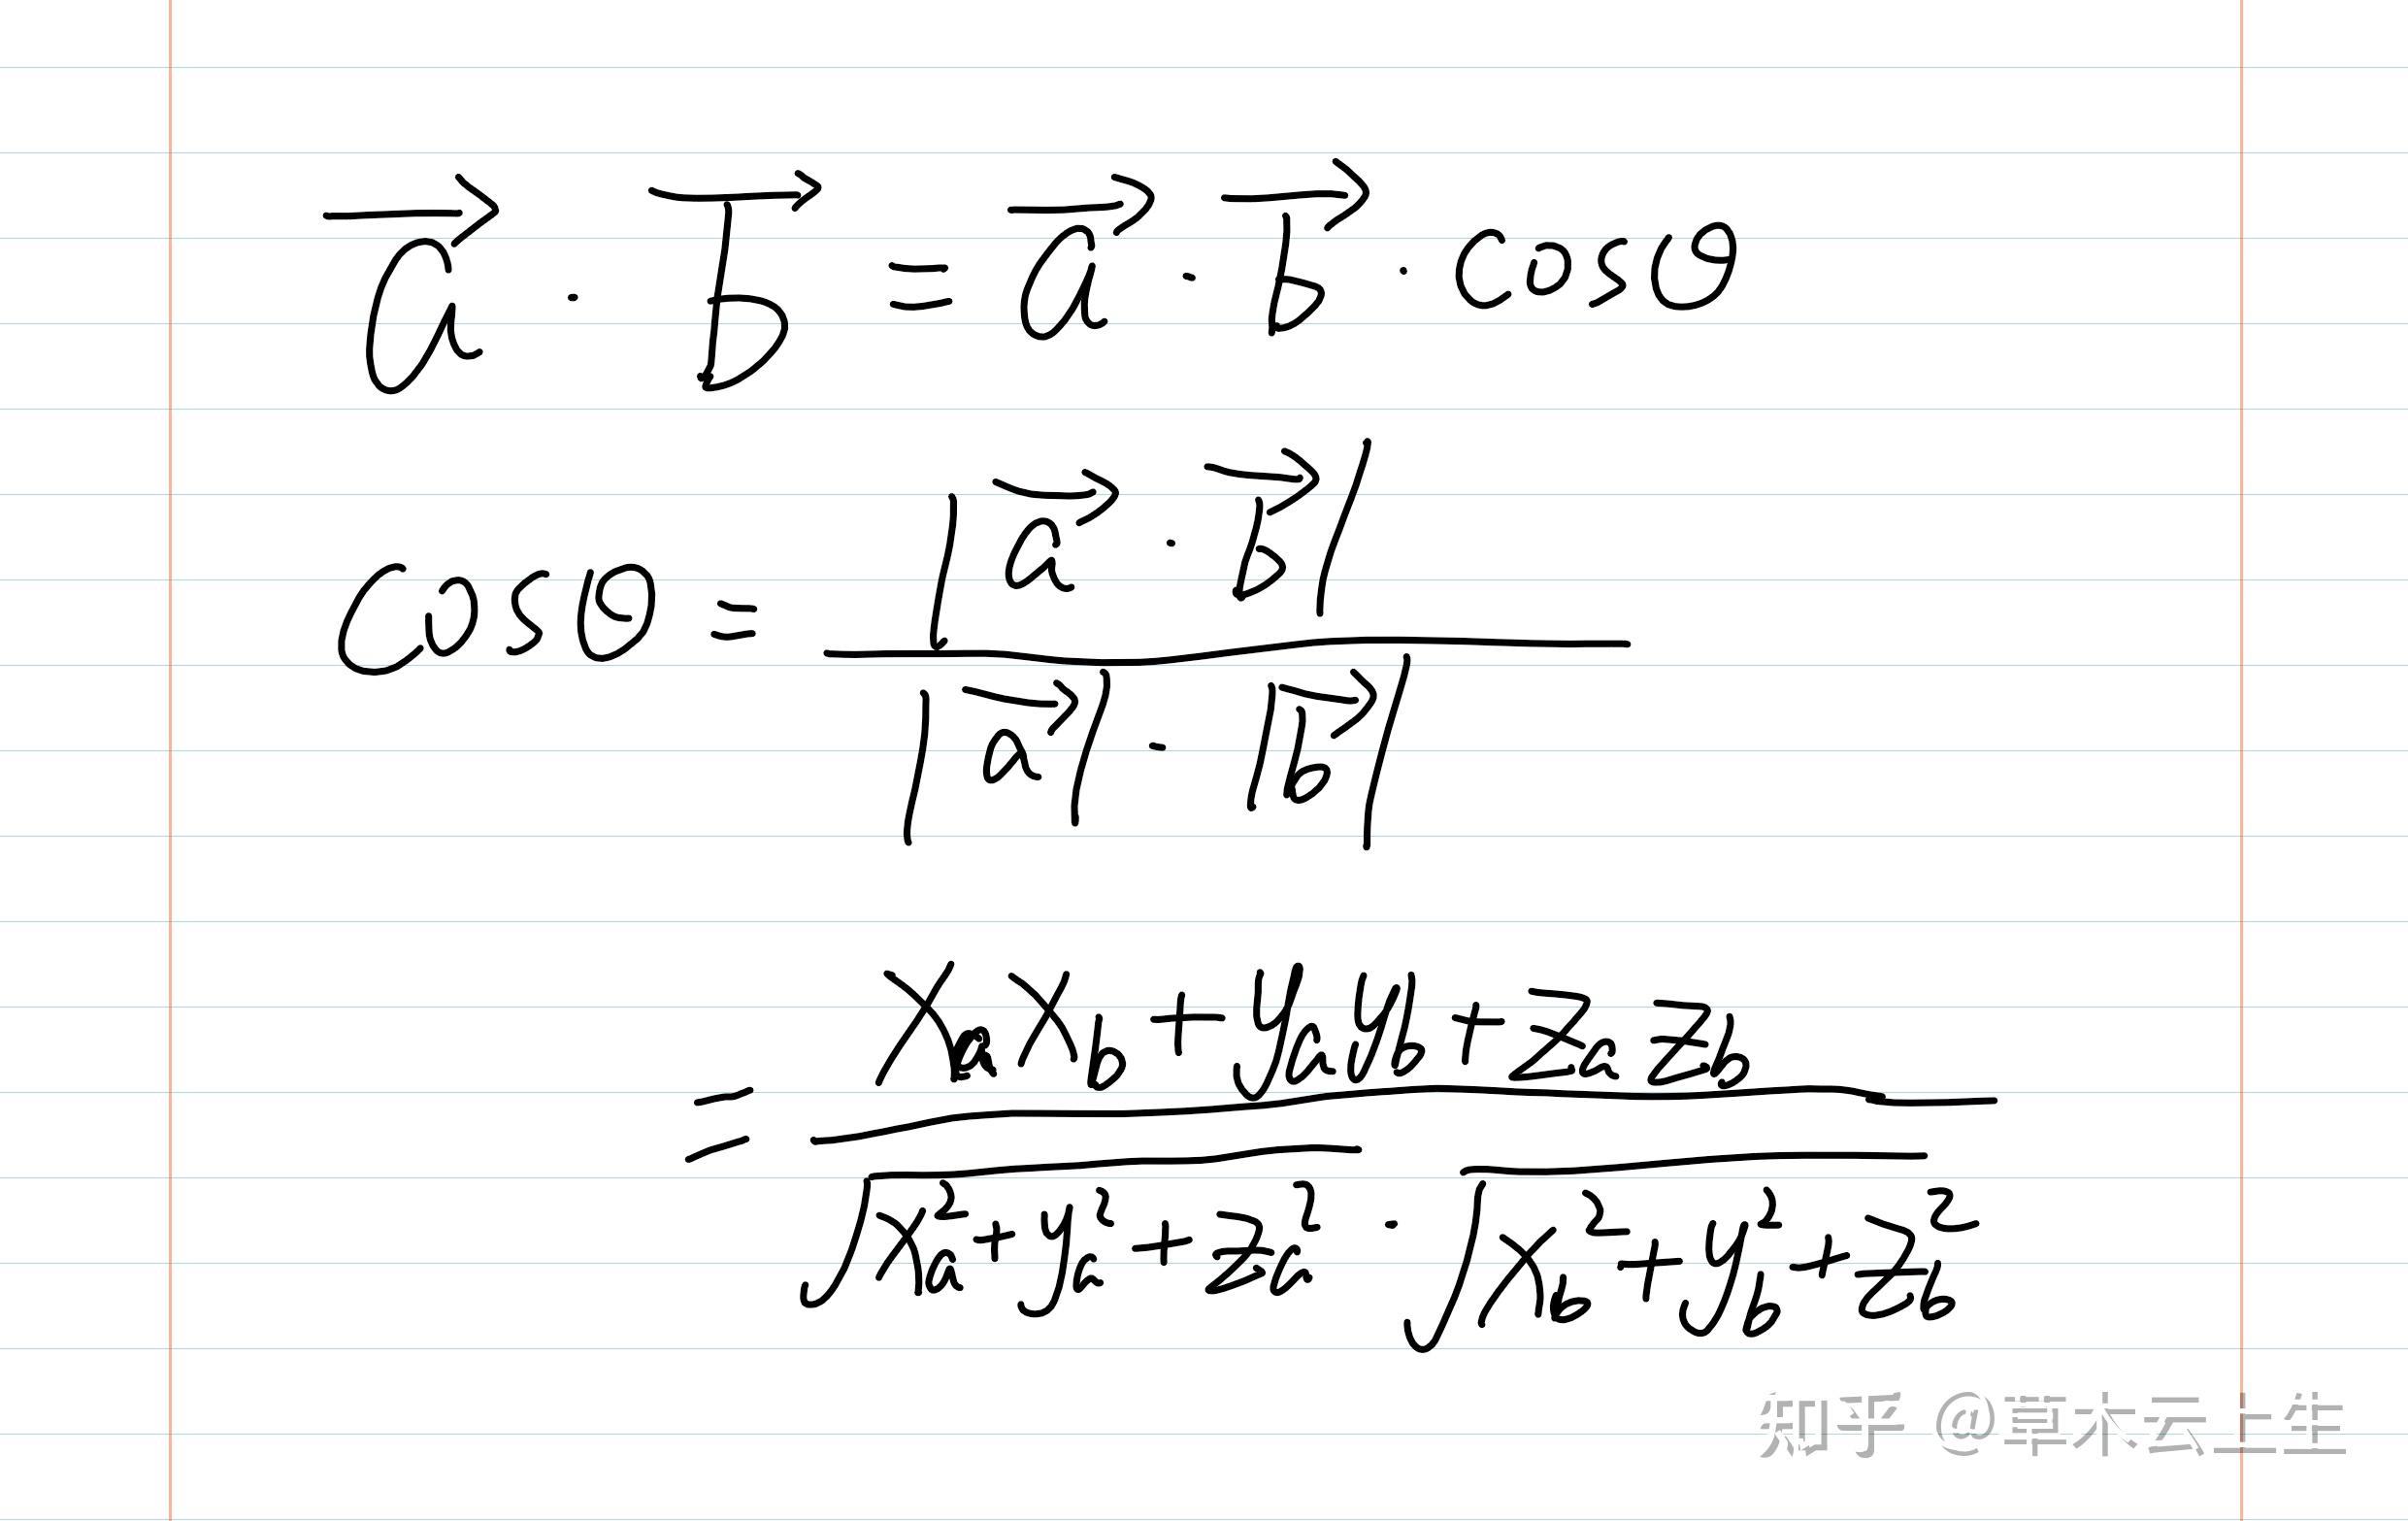 $\vec{a} \cdot \vec{b} = \vec{a} \cdot \vec{b} \cdot \cos\theta$
$\cos\theta = \frac{|\vec{a} \cdot \vec{b}|}{|\vec{a}| \cdot |\vec{b}|}$
$= \frac{x_a x_b + y_a y_b + z_a z_b}{\sqrt{x_a^2 + y_a^2 + z_a^2} \cdot \sqrt{x_b^2 + y_b^2 + z_b^2}}$
知乎 @草木云上生